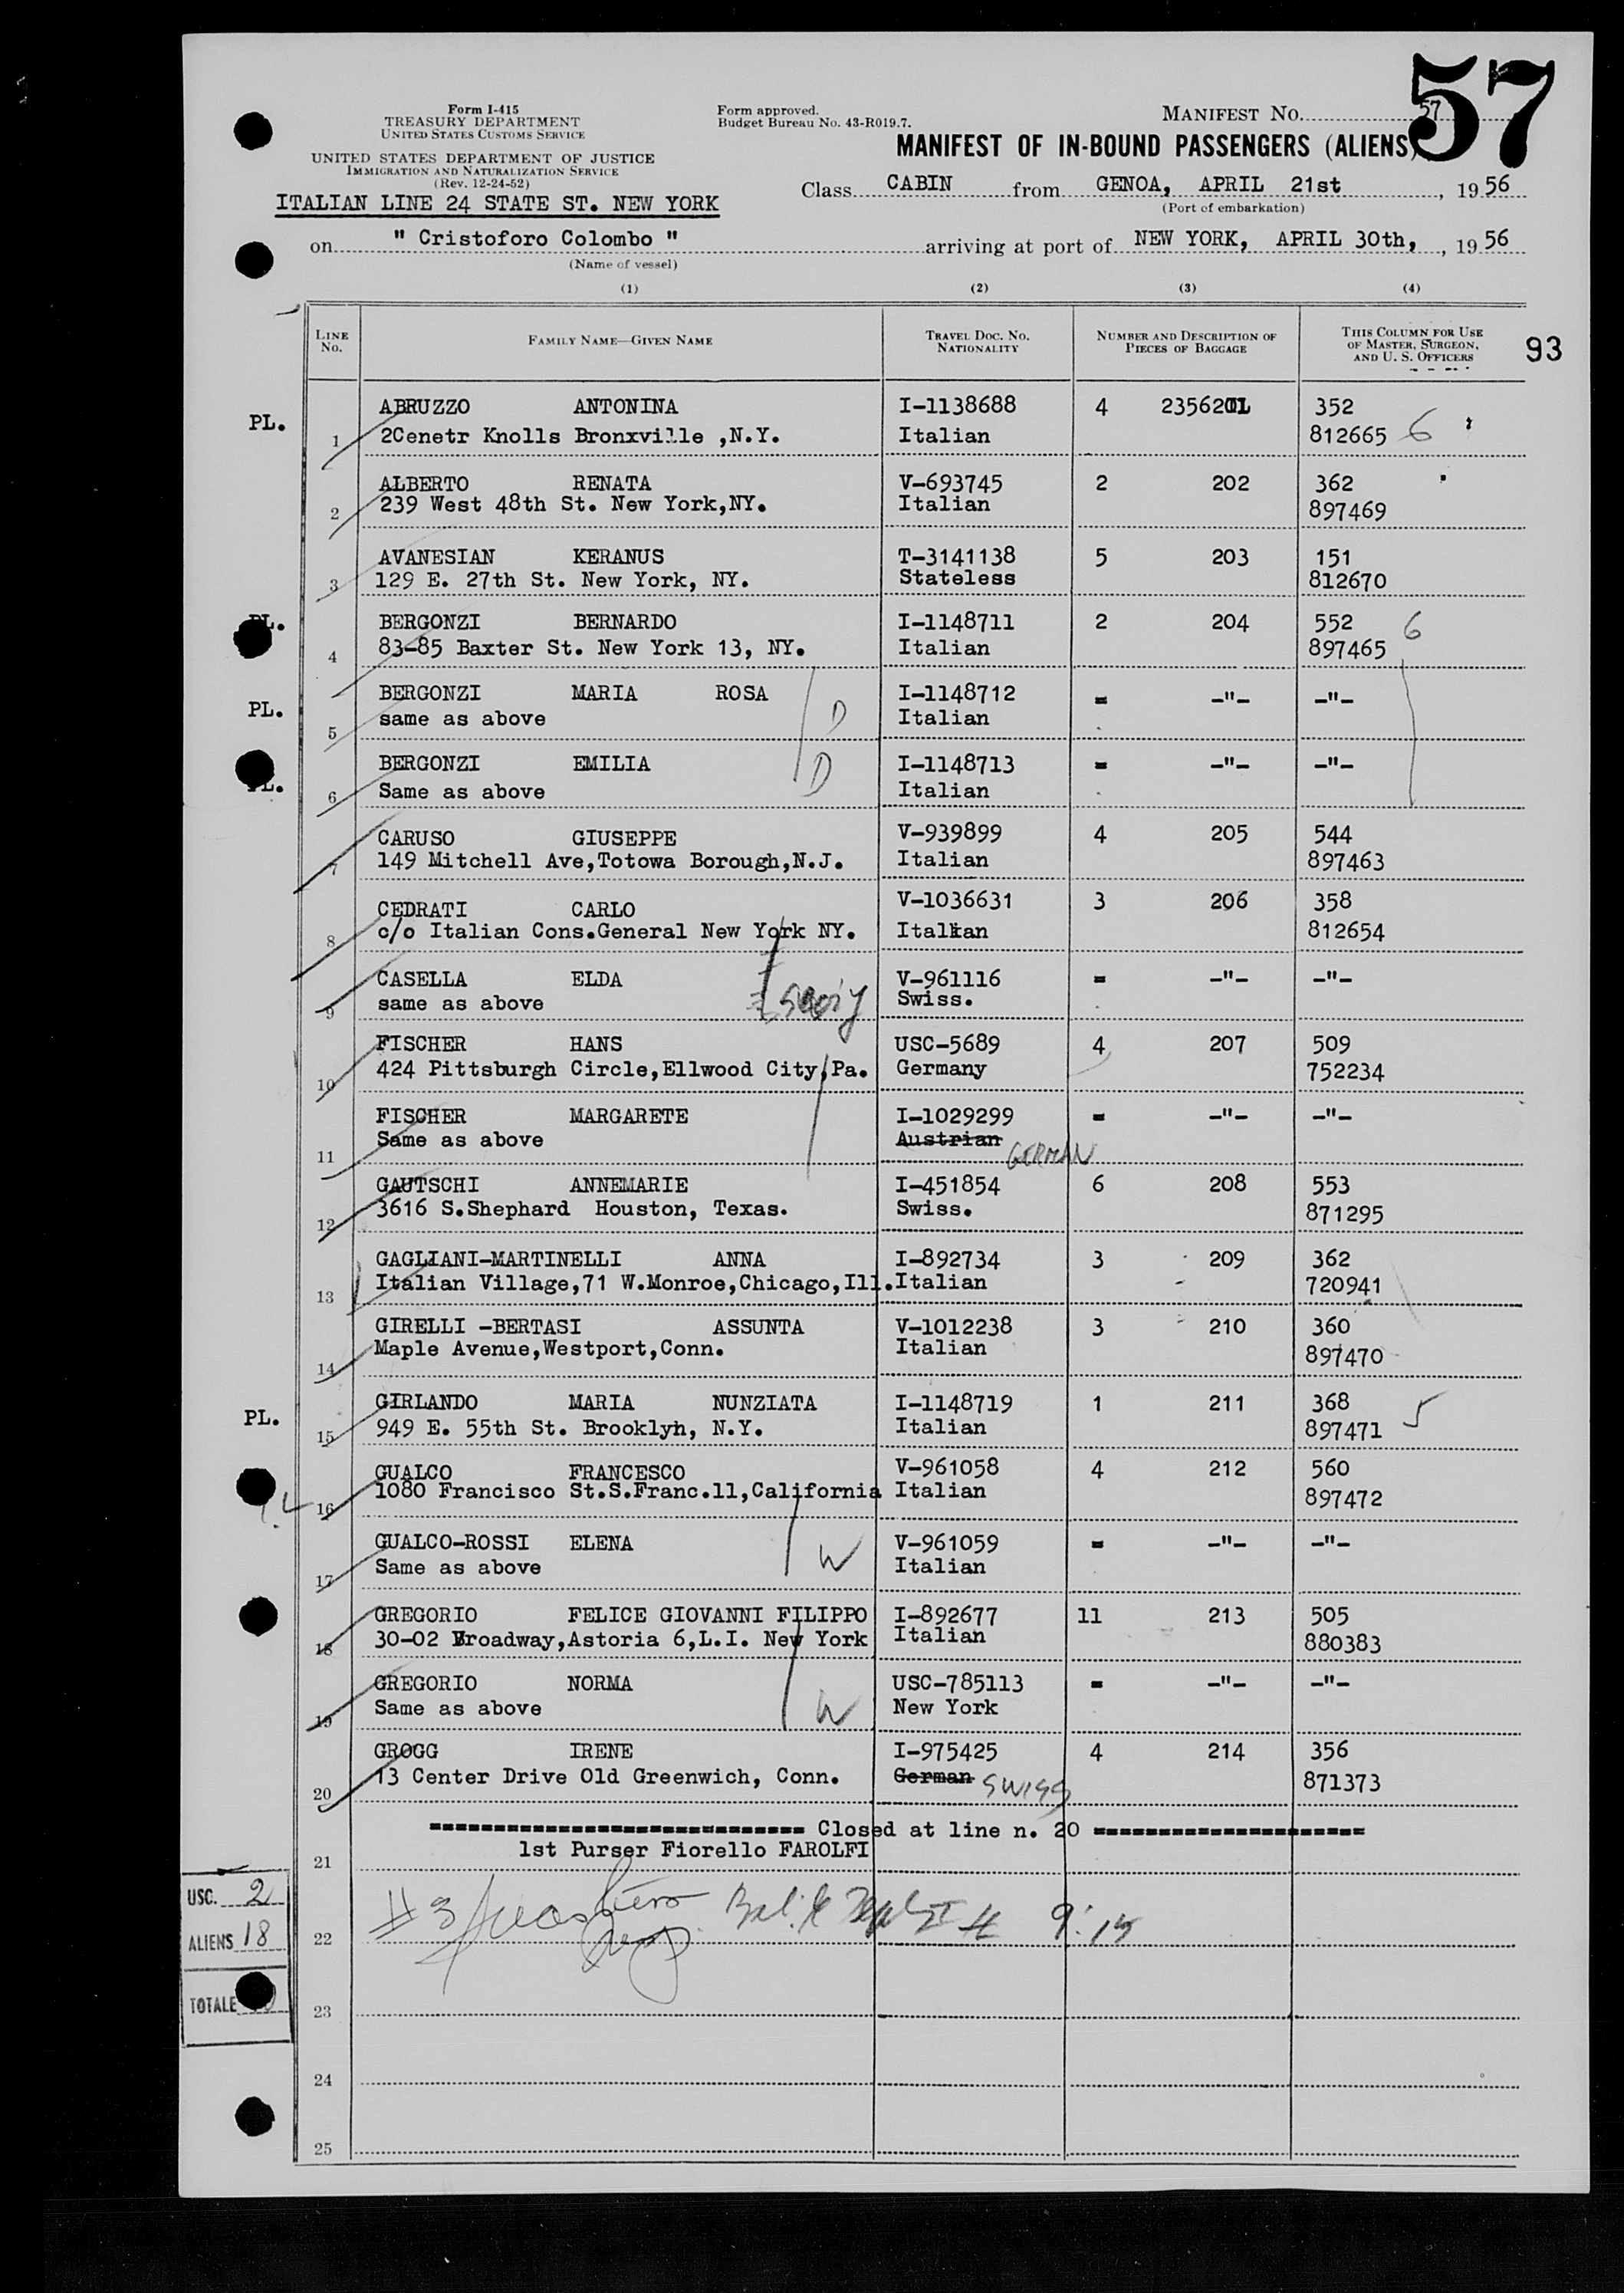 57
Form I-415
TREASURY DEPARTMENT
UNITED STATES CUSTOMS SERVICE
UNITED STATES DEPARTMENT OF JUSTICE
IMMIGRATION AND NATURALIZATION SERVICE
(Rev. 12-24-52)
ITALIAN LINE 24 STATE ST. NEW YORK
Form approved.
Budget Bureau No. 43-R019.7.
MANIFEST NO. 57
MANIFEST OF IN-BOUND PASSENGERS (ALIENS)
Class CABIN from GENOA, APRIL 21st, 1956
(Port of embarkation)
on " Cristoforo Colombo " arriving at port of NEW YORK, APRIL 30th,, 1956
(Name of vessel)
(1) (2) (3) (4)
LINE No. FAMILY NAME—GIVEN NAME TRAVEL DOC. NO. NATIONALITY NUMBER AND DESCRIPTION OF PIECES OF BAGGAGE THIS COLUMN FOR USE OF MASTER, SURGEON, AND U. S. OFFICERS 93
PL. ABRUZZO ANTONINA I-1138688 4 235620 352
1 2Cenetr Knolls Bronxville ,N.Y. Italian 812665 6
ALBERTO RENATA V-693745 2 202 362
2 239 West 48th St. New York,NY. Italian 897469
AVANESIAN KERANUS T-3141138 5 203 151
3 129 E. 27th St. New York, NY. Stateless 812670
PL. BERGONZI BERNARDO I-1148711 2 204 552 6
4 83-85 Baxter St. New York 13, NY. Italian 897465
PL. BERGONZI MARIA ROSA I-1148712 = -"- -"-
5 same as above D Italian
BERGONZI EMILIA I-1148713 = -"- -"-
PL. 6 Same as above D Italian
CARUSO GIUSEPPE V-939899 4 205 544
7 149 Mitchell Ave,Totowa Borough,N.J. Italian 897463
CEDRATI CARLO V-1036631 3 206 358
8 c/o Italian Cons.General New York NY. Italian 812654
CASELLA ELDA V-961116 = -"- -"-
9 same as above Swiss.
FISCHER HANS USC-5689 4 207 509
10 424 Pittsburgh Circle,Ellwood City,Pa. Germany 752234
FISCHER MARGARETE I-1029299 = -"- -"-
11 Same as above Austrian GERMAN
GAUTSCHI ANNEMARIE I-451854 6 208 553
12 3616 S.Shephard Houston, Texas. Swiss. 871295
GAGLIANI-MARTINELLI ANNA I-892734 3 209 362
13 Italian Village,71 W.Monroe,Chicago,Ill. Italian 720941
GIRELLI -BERTASI ASSUNTA V-1012238 3 210 360
14 Maple Avenue,Westport,Conn. Italian 897470
PL. GIRLANDO MARIA NUNZIATA I-1148719 1 211 368
15 949 E. 55th St. Brooklyn, N.Y. Italian 897471 5
GUALCO FRANCESCO V-961058 4 212 560
16 1080 Francisco St.S.Franc.11,California Italian 897472
GUALCO-ROSSI ELENA V-961059 = -"- -"-
17 Same as above W Italian
GREGORIO FELICE GIOVANNI FILIPPO I-892677 11 213 505
18 30-02 Broadway,Astoria 6,L.I. New York Italian 880383
GREGORIO NORMA USC-785113 = -"- -"-
19 Same as above W New York
GROGG IRENE I-975425 4 214 356
20 13 Center Drive Old Greenwich, Conn. German SWISS 871373
============================= Closed at line n. 20 =====================
1st Purser Fiorello FAROLFI
21
USC. 2
ALIENS 18
22 9:15
TOTALE
23
24
25